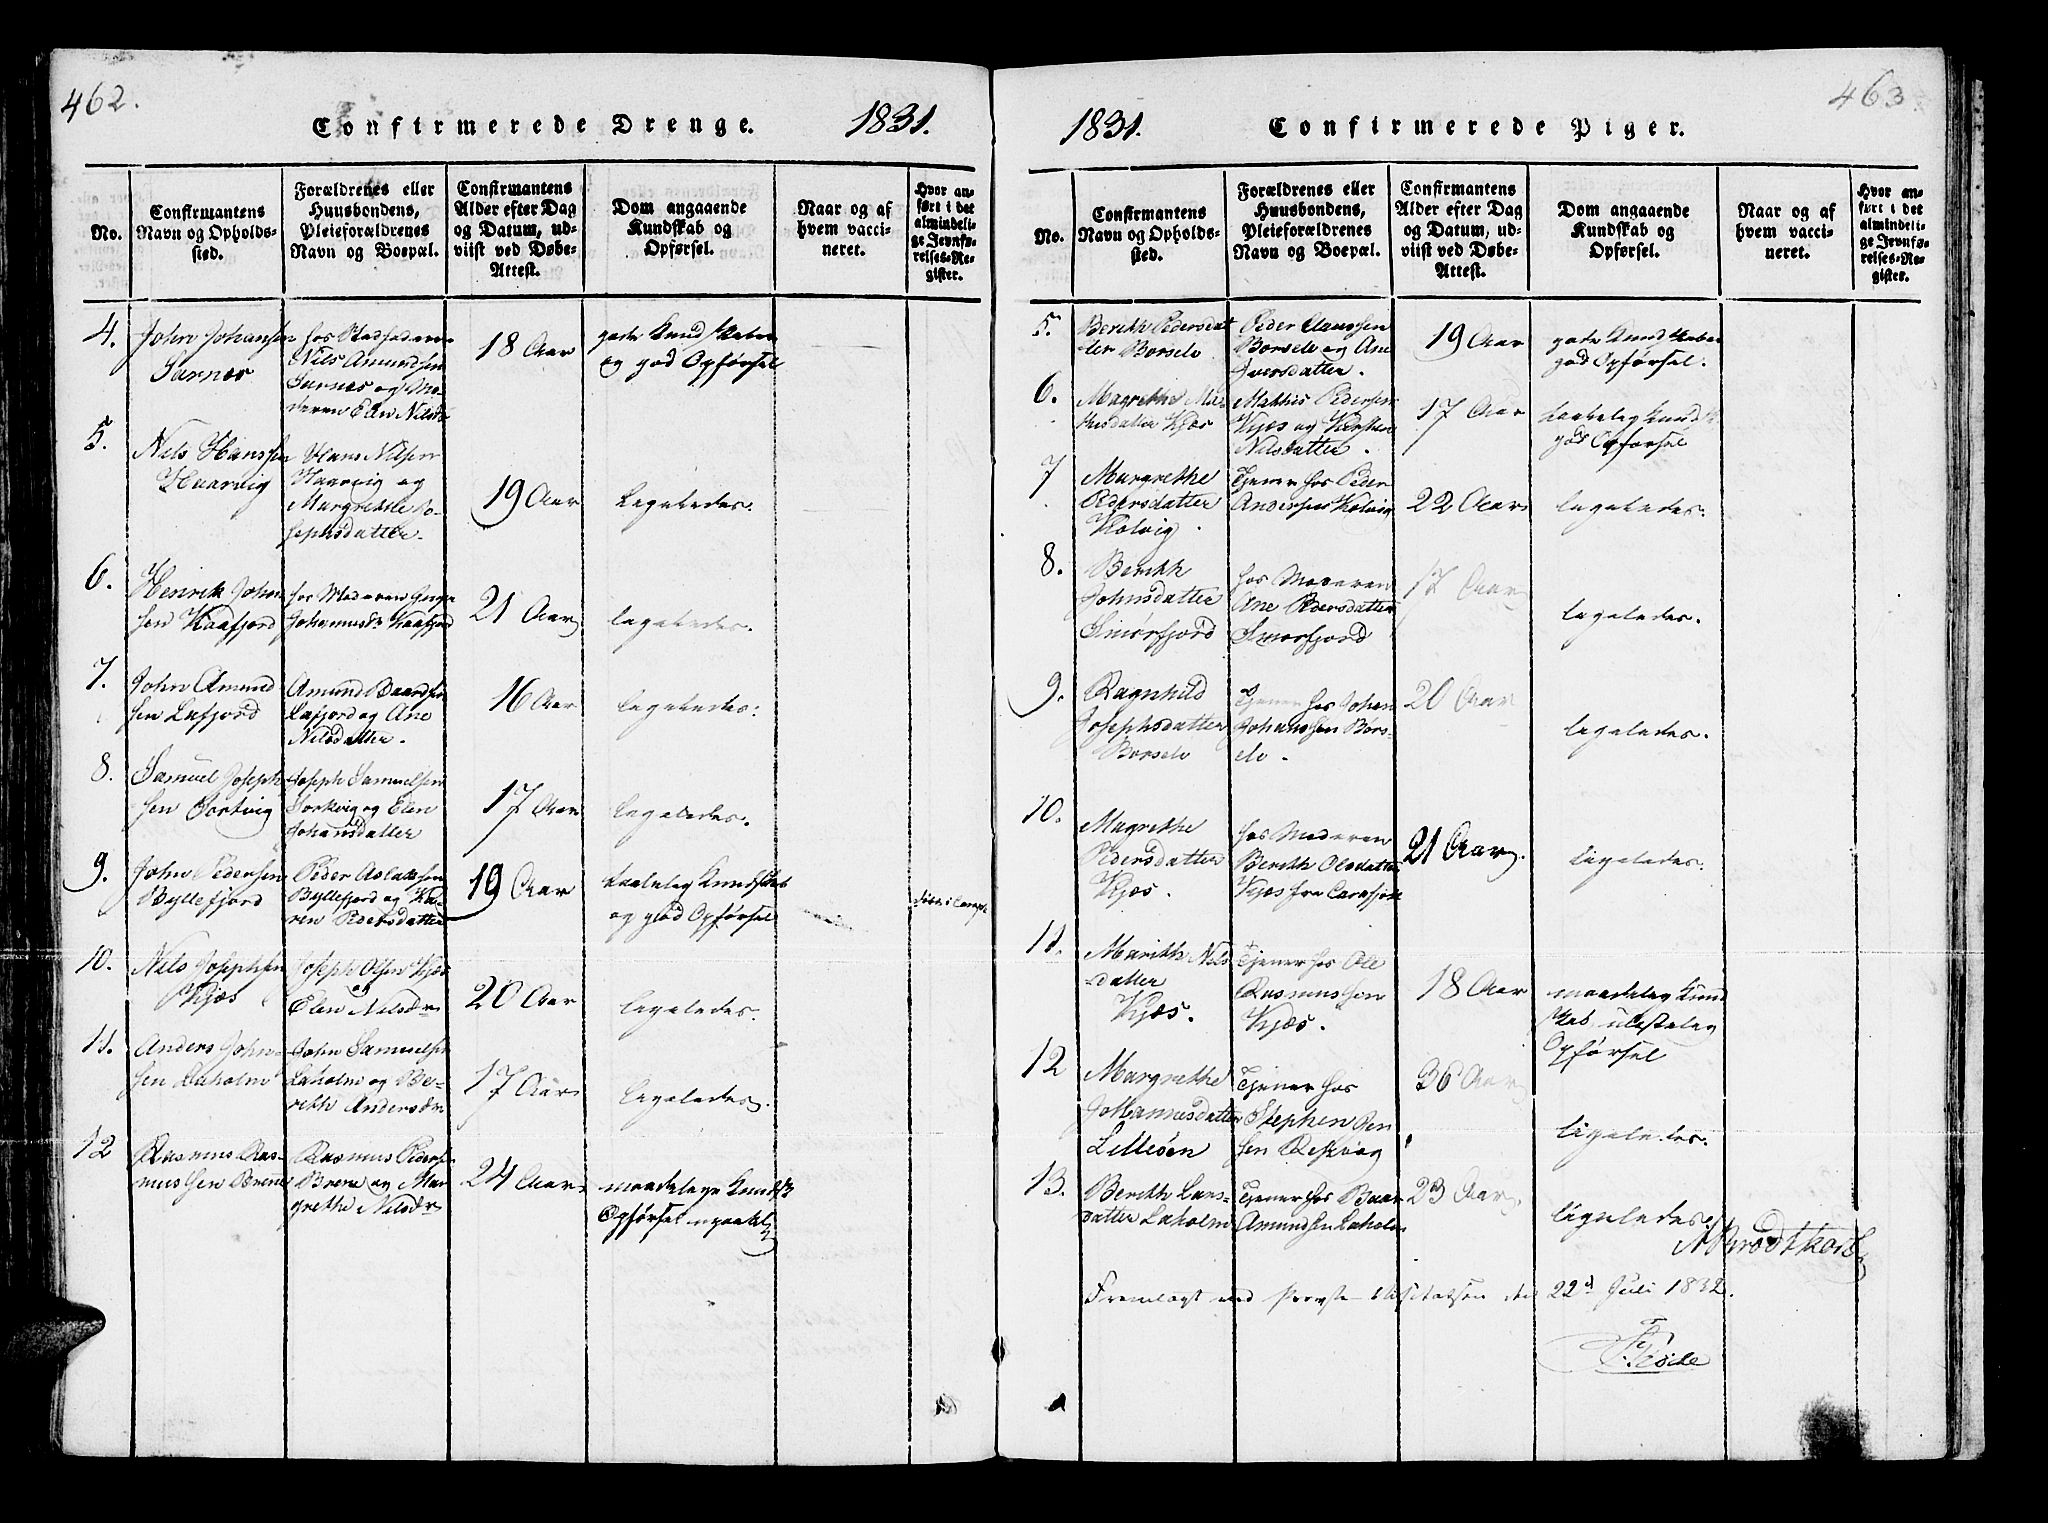 462.
Confirmerede Drenge.
1831.
No.
Confirmantens
Navn og Opholds-
sted.
Forældrenes eller
Huusbondens,
Pleieforældrenes
Navn og Boepæl.
Confirmantens
Alder efter Dag
og Datum, ud-
viist ved Døbe-
Attest.
Dom angaaende
Kundskab og
Opførsel.
Naar og af
hvem vacci-
neret.
Hvor an-
ført i det
almindeli-
ge Jevnfø-
relses-Re-
gister.
4.
John Johansen
Sarnes
hos
Nils Amundsen
Sarnes og Mo-
deren Elen Nilsd
18 Aar
gode Kundskaber
og god Opførsel
5.
Nils Hanssen
Haarvig
Hans Nilsen
Haarvig og
Margrethe Jo-
sephsdatter.
19 Aar
Ligeledes.
6.
Henrik Johan
sen Kaafjord
hos Moderen Inger
Johannesdr Kaafjord
21 Aar
ligeledes.
7.
John Amund
sen Lafjord
Amund Baardsen
Lafjord og Ane
Nilsdatter.
16 Aar
Ligeledes.
8.
Samuel Joseph
sen Sortvig
Joseph Samuelsen
Sortvig og Elen
Johansdatter
17 Aar
Ligeledes.
9.
John Pedersen
Byllefjord
Peder Aslaksen
Byllefjord og Ka-
ren Pedersdatter
19 Aar
taalelig Kundskab
og god Opførsel
10.
Nils Josephsen
Kjæs
Joseph Olsen Kjæs
og
Elen Nilsdr
20 Aar
Ligeledes.
11.
Anders John-
sen Laholm
John Samuelsen
Laholm og Be-
rith Andersdr
17 Aar
Ligeledes.
12
Rasmus Ras-
mussen Brenne
Rasmus Peders
Brene og Mar
grethe Nilsdr
24 Aar
maadelige Kundsk
Opførsel upaakl
463.
1831.
Confirmerede Piger.
No.
Confirmantens
Navn og Opholds-
sted.
Forældrenes eller
Huusbondens,
Pleieforældrenes
Navn og Boepæl.
Confirmantens
Alder efter Dag
og Datum, ud-
viist ved Døbe-
Attest.
Dom angaaende
Kundskab og
Opførsel.
Naar og af
hvem vacci-
neret.
Hvor an-
ført i det
almindeli-
ge Jevnfø-
relses-Re-
gister.
5.
Berith Pedersdat
ter Borselv
Peder Claussen
Borselv og Ane
Iversdatter.
19 Aar
gode Kundskaber
god Opførsel.
6.
Magrethe Ma-
thisdatter Kjæs
Mathis Pedersen
Kjæs og Kirsten
Nilsdatter.
17 Aar
taalelig Kundsk
god Opførsel
7
Margrethe
Pedersdatter
Kolvig.
Tjener hos Peder
Anderssen Kolvig
22 Aar
ligeledes.
8.
Berith
Johnsdatter
Smørfjord
hos Moderen
Ane Pedersdatter
Smørfjord
17 Aar
ligeledes.
9.
Ragnhild
Josephsdatter
Borselv
Tjener hos Johan
Johanssen Børs-
elv.
20 Aar
ligeledes.
10.
Magrethe
Pedersdatter
Kjæs.
hos Moderen
Berith Olsdatter
Kjæs fra
21 Aar.
ligeledes.
11.
Marith Nils
datter
Kjæs.
Tjener hos Ole
Rasmussen
Kjæs.
18 Aar
maadelig Kund
skab, ulastelig
Opførsel
12
Margrethe
Johannesdatter
Lilleøen
Tjener hos
Stephen Pen
sen Reskvog
36 Aar
ligeledes.
13.
Berith Lars-
datter Laholm
Tjener hos Baar
Amundsen Laholm
23 Aar
ligeledes
Brodtkorb
Fremlagt ved Provste Visitatsen den 22d Juli 1832.